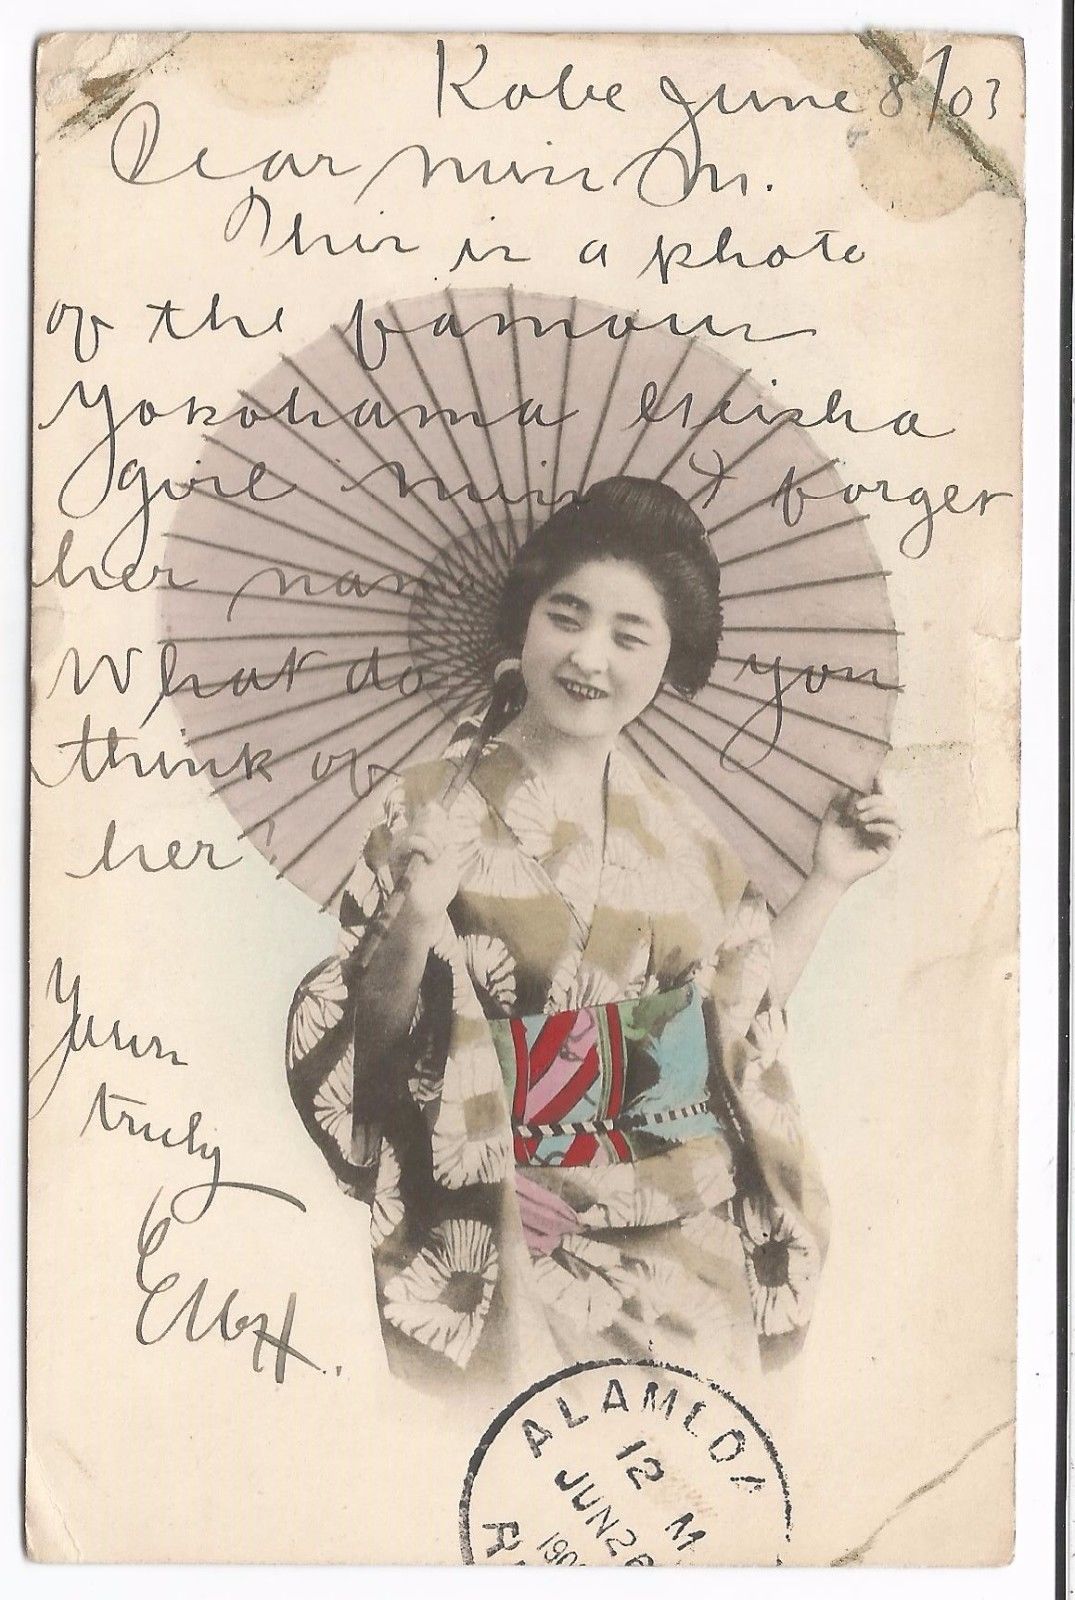 Kobe June 8/03
Dear Miss M.
This is a photo
of the famous
Yokohama Geisha
girl Miss I forget
her name
What do you
think of
her?
Yours
truly
ALAMEDA
12 M
JUN 26
190
R